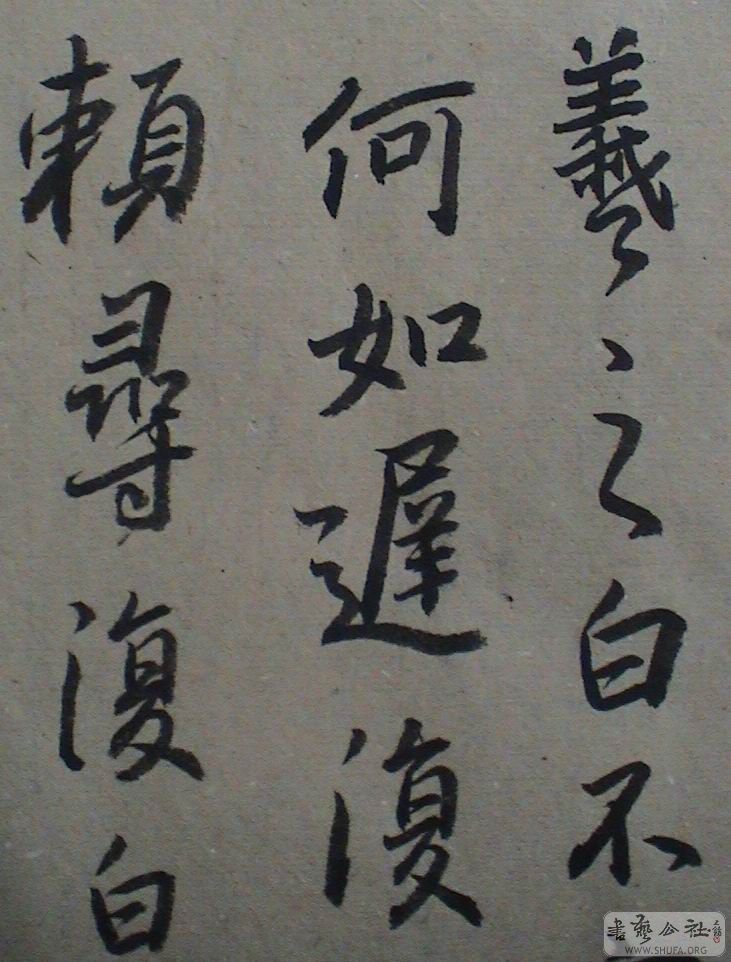 羲之白不
何如遲復
頼尋復白
書藝公社
WWW.SHUFA.ORG